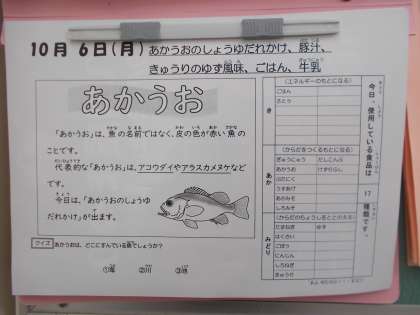 10月 6日(月) あかうおのしょうゆだれかけ、豚汁、
きゅうりのゆず風味、ごはん、牛乳
あかうお
「あかうお」は、魚の名前ではなく、皮の色が赤い魚の
ことです。
代表的な「あかうお」は、アコウダイやアラスカメヌケなど
です。
今日は、「あかうおのしょうゆ
だれかけ」が出ます。
クイズ あかうおは、どこにすんでいる魚でしょうか?
①海 ②川 ③池
今日、使用している食品は
17
種類です。
き
(エネルギーのもとになる)
ごはん
さとう
あか
(からだをつくるもとになる)
ぎゅうにゅう
あかうお
ぶたにく
うすあげ
あかみそ
しろみそ
だしこんぶ
けずりぶし
みどり
(からだのちょうしをととのえる)
たまねぎ ゆず
はくさい
ごぼう
にんじん
しろねぎ
きゅうり